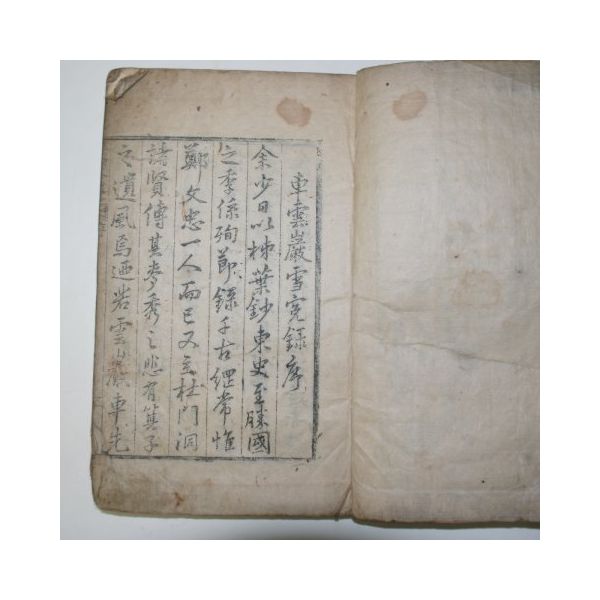 車雲巖雪寃錄序
余少日以柹葉鈔東史至勝國
之季係殉節錄千古綱常惟
鄭文忠一人而已又玄杜門洞
諸賢傳其麥秀之悲有箕子
之遺風焉迺若雲巖車先